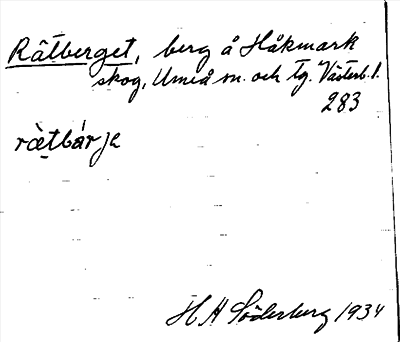 Råtberget, berg å Håkmark
skog, Umeå sn. och tg. Västerb. l.
283
rætbárje
H A Söderberg 1934